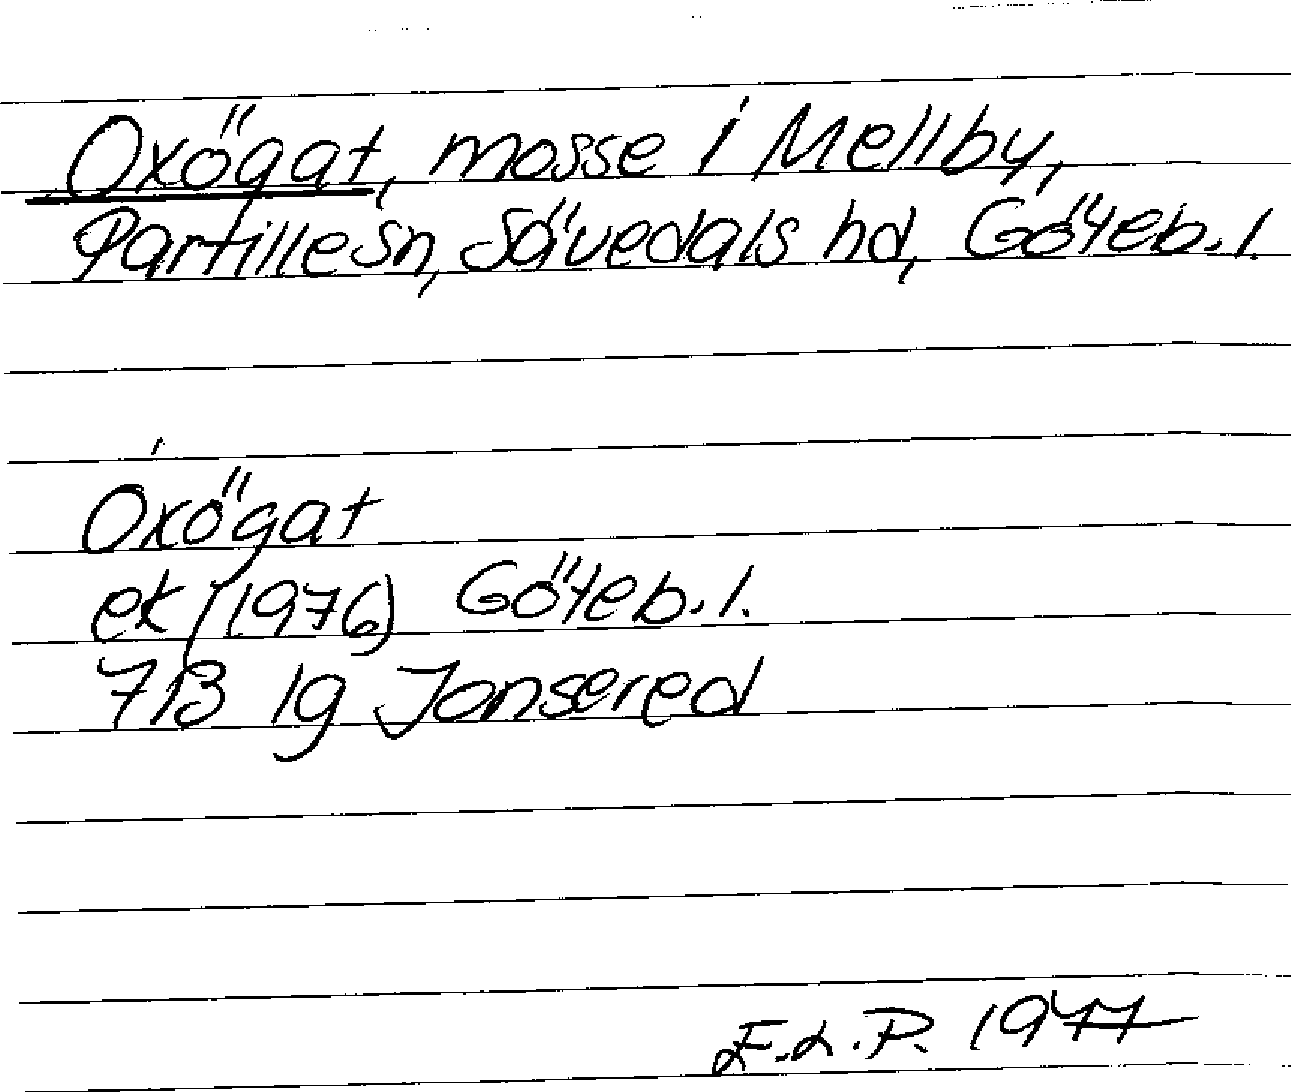 Oxögat, mosse i Mellby,
Partille sn, Sävedals hd, Göteb. l.
Oxögat
ek (1976) Göteb. l.
7B 1g Jonsered
E.L.P. 1977